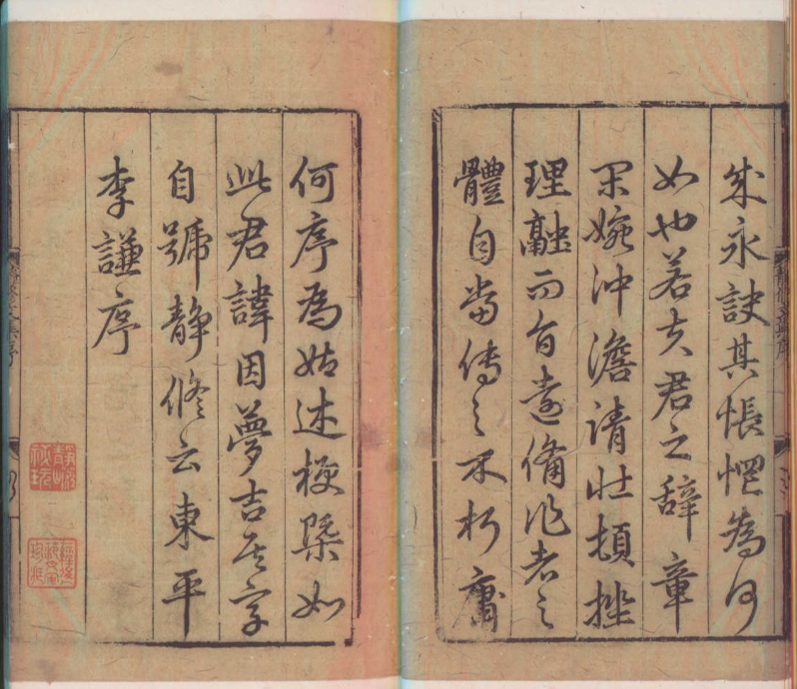 成永訣其悵惘為何
如也若夫君之辭章
閑婉沖澹清壯頓挫
理融而旨遠備作者之
體自當傳之不朽庸
何序為姑述梗槩如
此君諱因夢吉其字
自號靜修云東平
李謙序